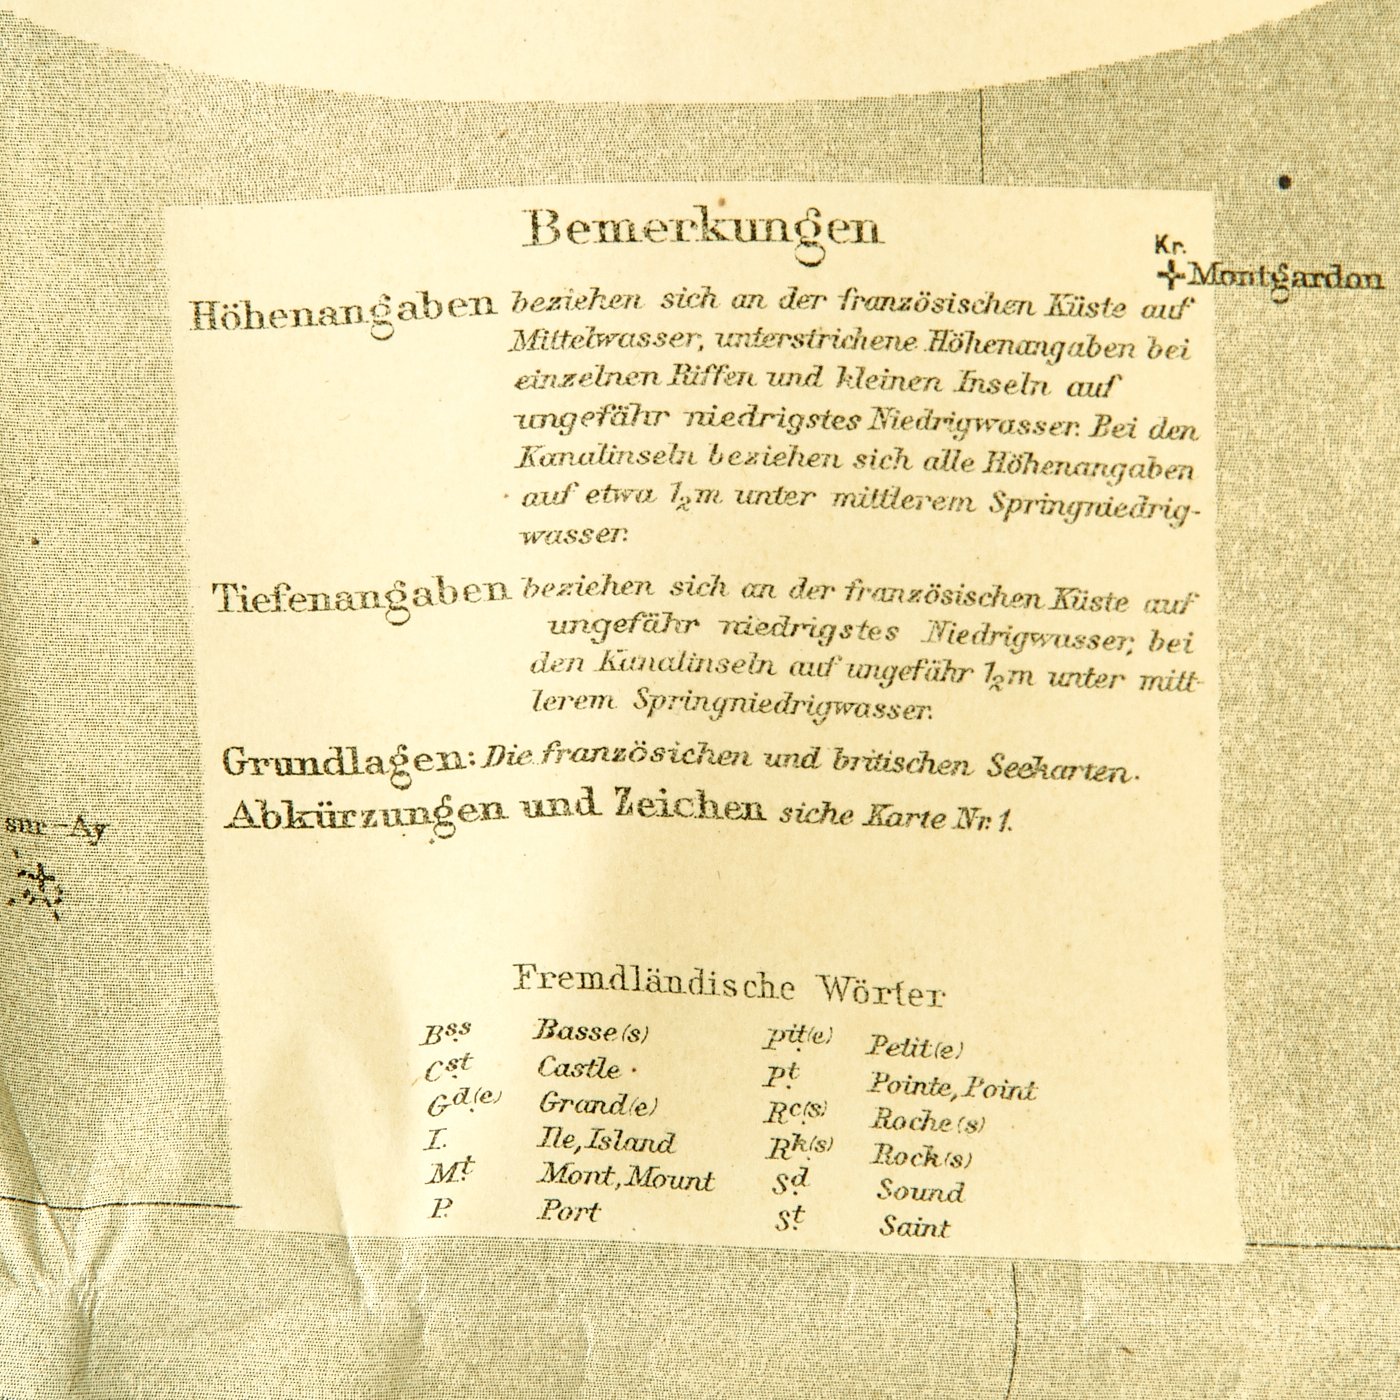 Bemerkungen
Kr.
Montgardon
Höhenangaben beziehen sich an der französischen Küste auf
Mittelwasser, unterstrichene Höhenangaben bei
einzelnen Riffen und kleinen Inseln auf
ungefähr niedrigstes Niedrigwasser. Bei den
Kanalinseln beziehen sich alle Höhenangaben
auf etwa ½m unter mittlerem Springniedrig-
wasser.
Tiefenangaben beziehen sich an der französischen Küste auf
ungefähr niedrigstes Niedrigwasser, bei
den Kanalinseln auf ungefähr ½m unter mitt-
lerem Springniedrigwasser.
Grundlagen: Die französichen und britischen Seekarten.
Abkürzungen und Zeichen siehe Karte Nr. 1.
sur-Ay
Fremdländische Wörter
Bss. Basse(s) pit(e) Petit(e)
Cst. Castle Pt. Pointe, Point
Gd.(e) Grand(e) Rc.(s) Roche(s)
I. Ile, Island Rk.(s) Rock(s)
Mt. Mont, Mount Sd. Sound
P. Port St. Saint